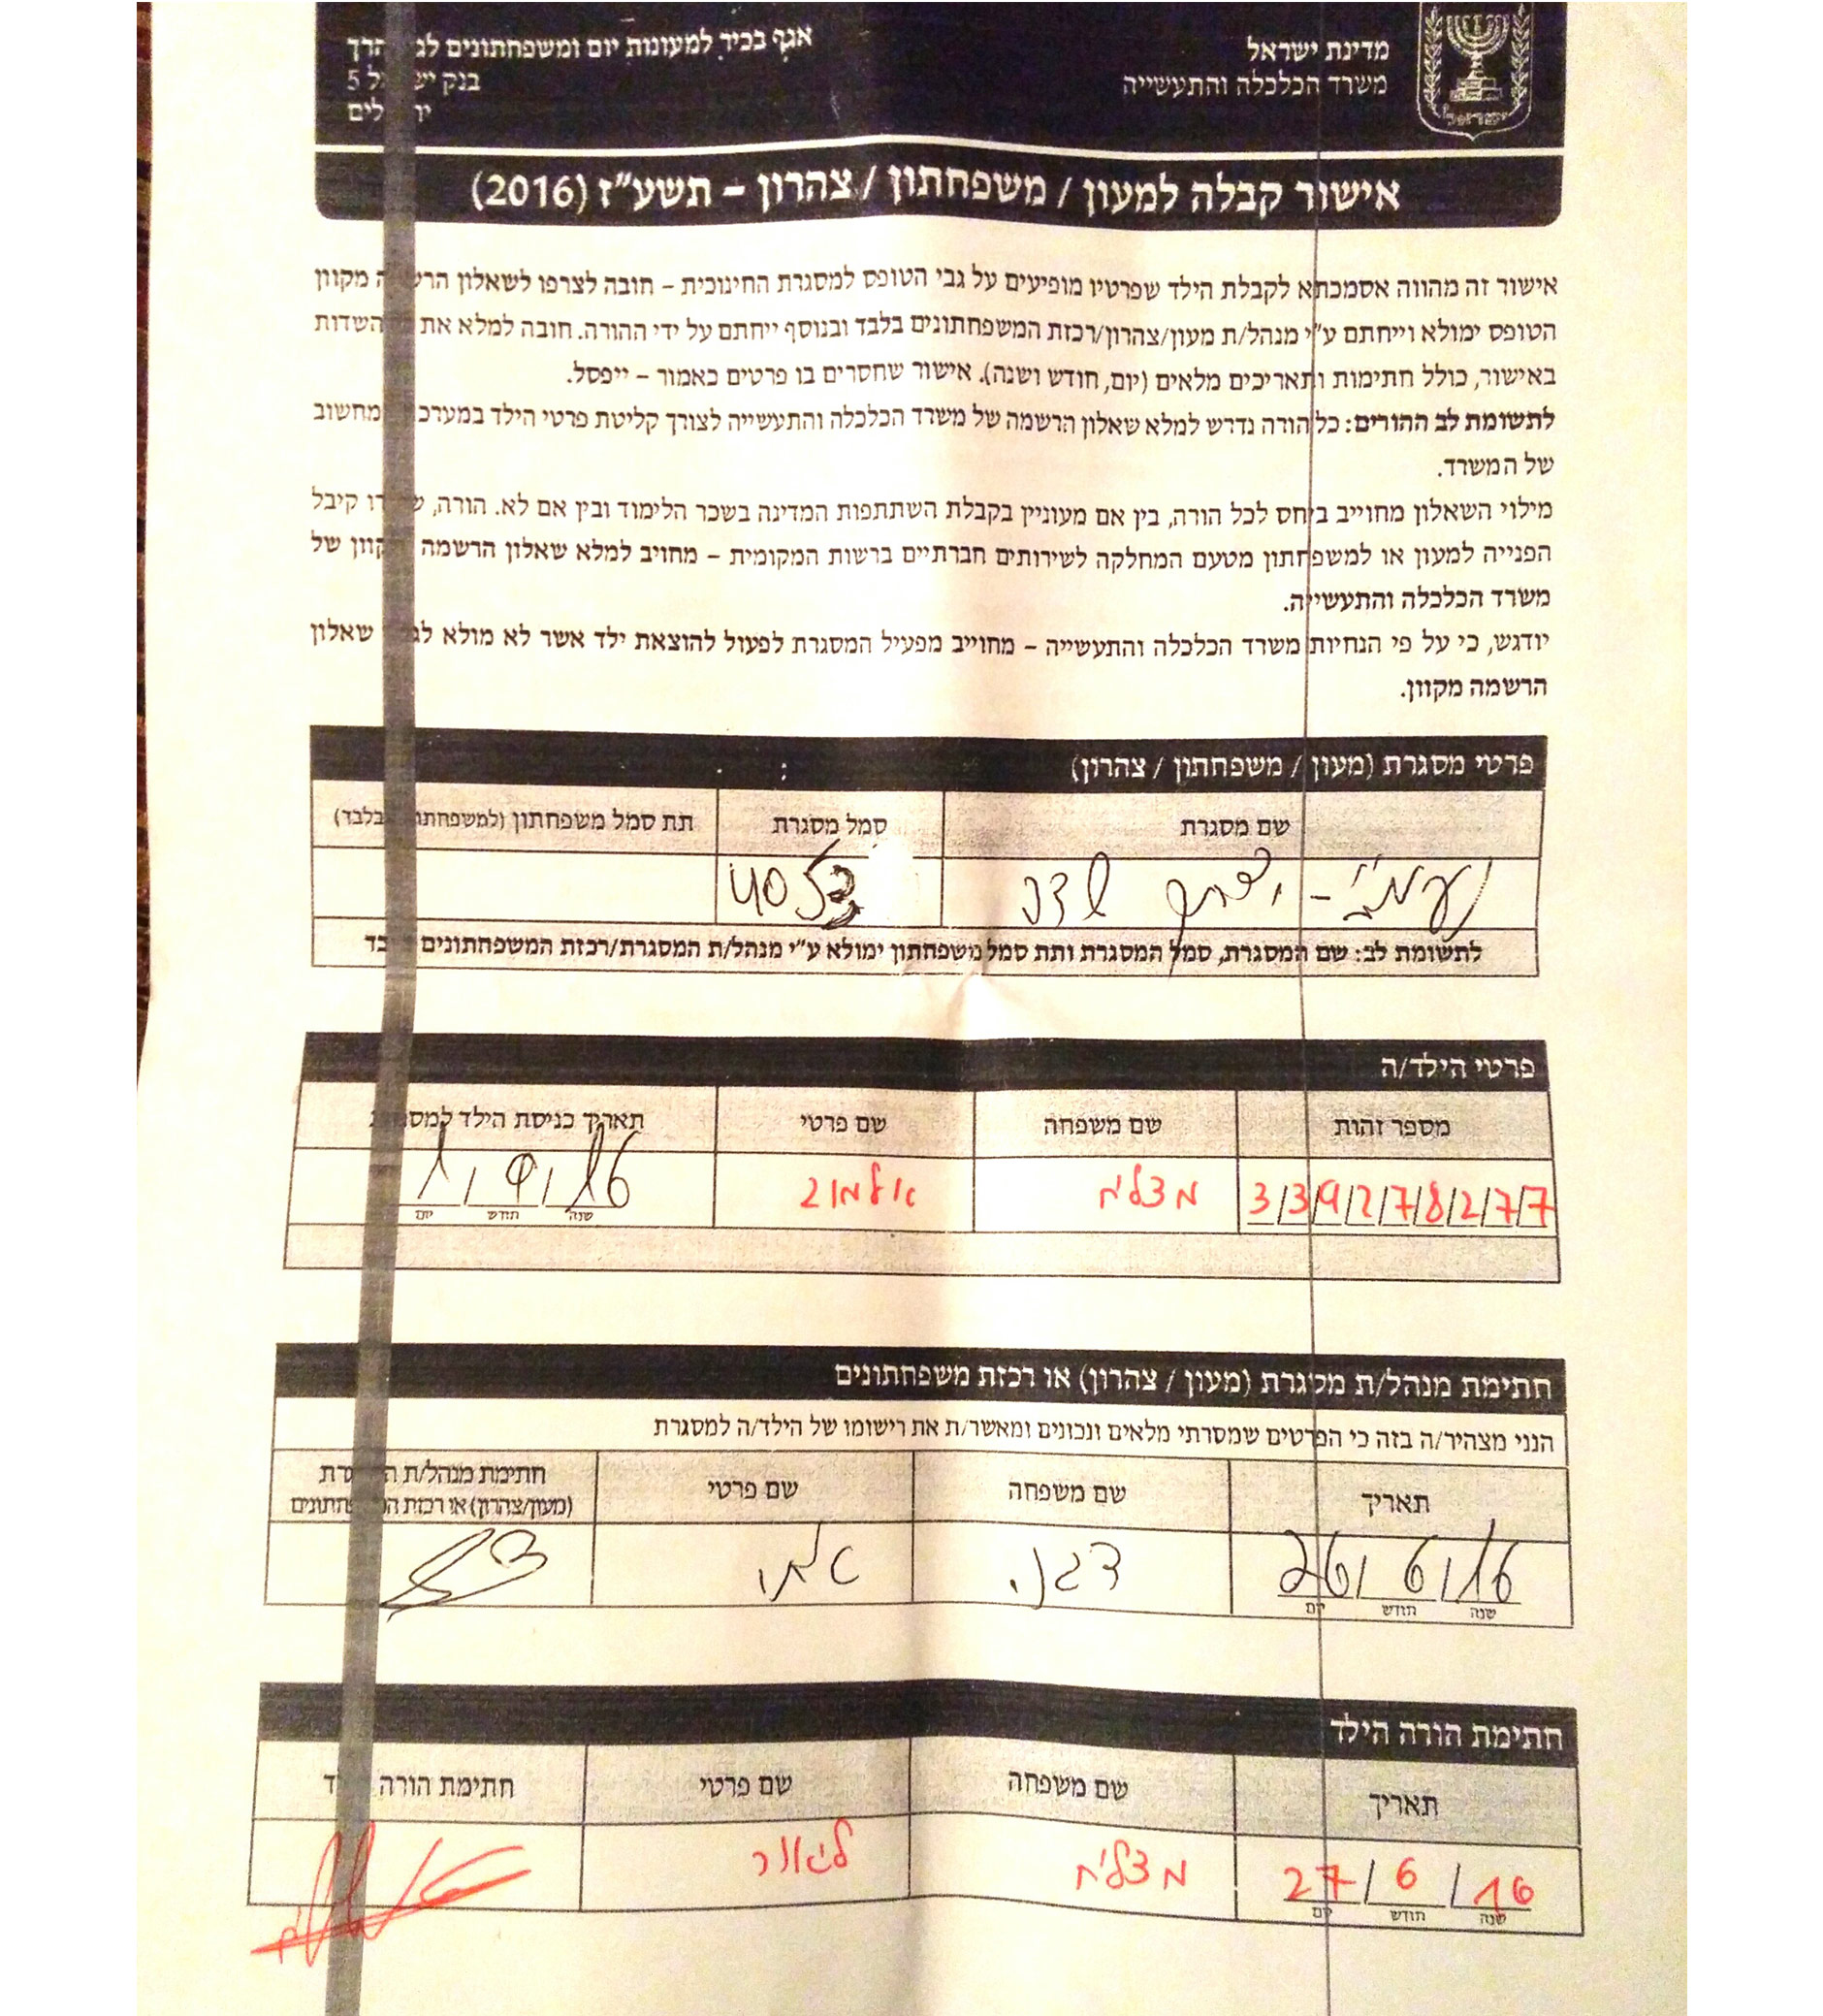 מדינת ישראל
משרד הכלכלה והתעשייה
אגף בכיר למעונות יום ומשפחתונים לגיל הרך
בנק ישראל 5
ירושלים
ישראל
אישור קבלה למעון / משפחתון / צהרון – תשע"ז (2016)
אישור זה מהווה אסמכתא לקבלת הילד שפרטיו מופיעים על גבי הטופס למסגרת החינוכית – חובה לצרפו לשאלון הרשמה מקוון
הטופס ימולא וייחתם ע"י מנהל/ת מעון/צהרון/רכזת המשפחתונים בלבד ובנוסף ייחתם על ידי ההורה. חובה למלא את השדות
באישור, כולל חתימות ותאריכים מלאים (יום, חודש ושנה). אישור שחסרים בו פרטים כאמור – ייפסל.
לתשומת לב ההורים: כל הורה נדרש למלא שאלון הרשמה של משרד הכלכלה והתעשייה לצורך קליטת פרטי הילד במערכת מחשוב
של המשרד.
מילוי השאלון מחוייב ביחס לכל הורה, בין אם מעוניין בקבלת השתתפות המדינה בשכר הלימוד ובין אם לא. הורה, קיבל
הפנייה למעון או למשפחתון מטעם המחלקה לשירותים חברתיים ברשות המקומית – מחויב למלא שאלון הרשמה מקוון של
משרד הכלכלה והתעשייה.
יודגש, כי על פי הנחיות משרד הכלכלה והתעשייה – מחוייב מפעיל המסגרת לפעול להוצאת ילד אשר לא מולא לגביו שאלון
הרשמה מקוון.
פרטי מסגרת (מעון / משפחתון / צהרון)
שם מסגרת סמל מסגרת תת סמל משפחתון (למשפחתון בלבד)
נעמת - יצחק שדה
לתשומת לב: שם המסגרת, סמל המסגרת ותת סמל משפחתון ימולא ע"י מנהל/ת המסגרת/רכזת המשפחתונים בלבד
פרטי הילד/ה
מספר זהות שם משפחה שם פרטי תאריך כניסת הילד למסגרת
3/3/9/2/7/8/2/7/7 מצליח אלמוג 1/9/16
יום חודש שנה
חתימת מנהל/ת מסגרת (מעון / צהרון) או רכזת משפחתונים
הנני מצהיר/ה בזה כי הפרטים שמסרתי מלאים ונכונים ומאשר/ת את רישומו של הילד/ה למסגרת
תאריך שם משפחה שם פרטי חתימת מנהל/ת המסגרת
(מעון/צהרון) או רכזת המשפחתונים
26/6/16 דגני אתי
יום חודש שנה
חתימת הורה הילד
תאריך שם משפחה שם פרטי חתימת הורה הילד
27/6/16 מצליח ליאור
יום חודש שנה